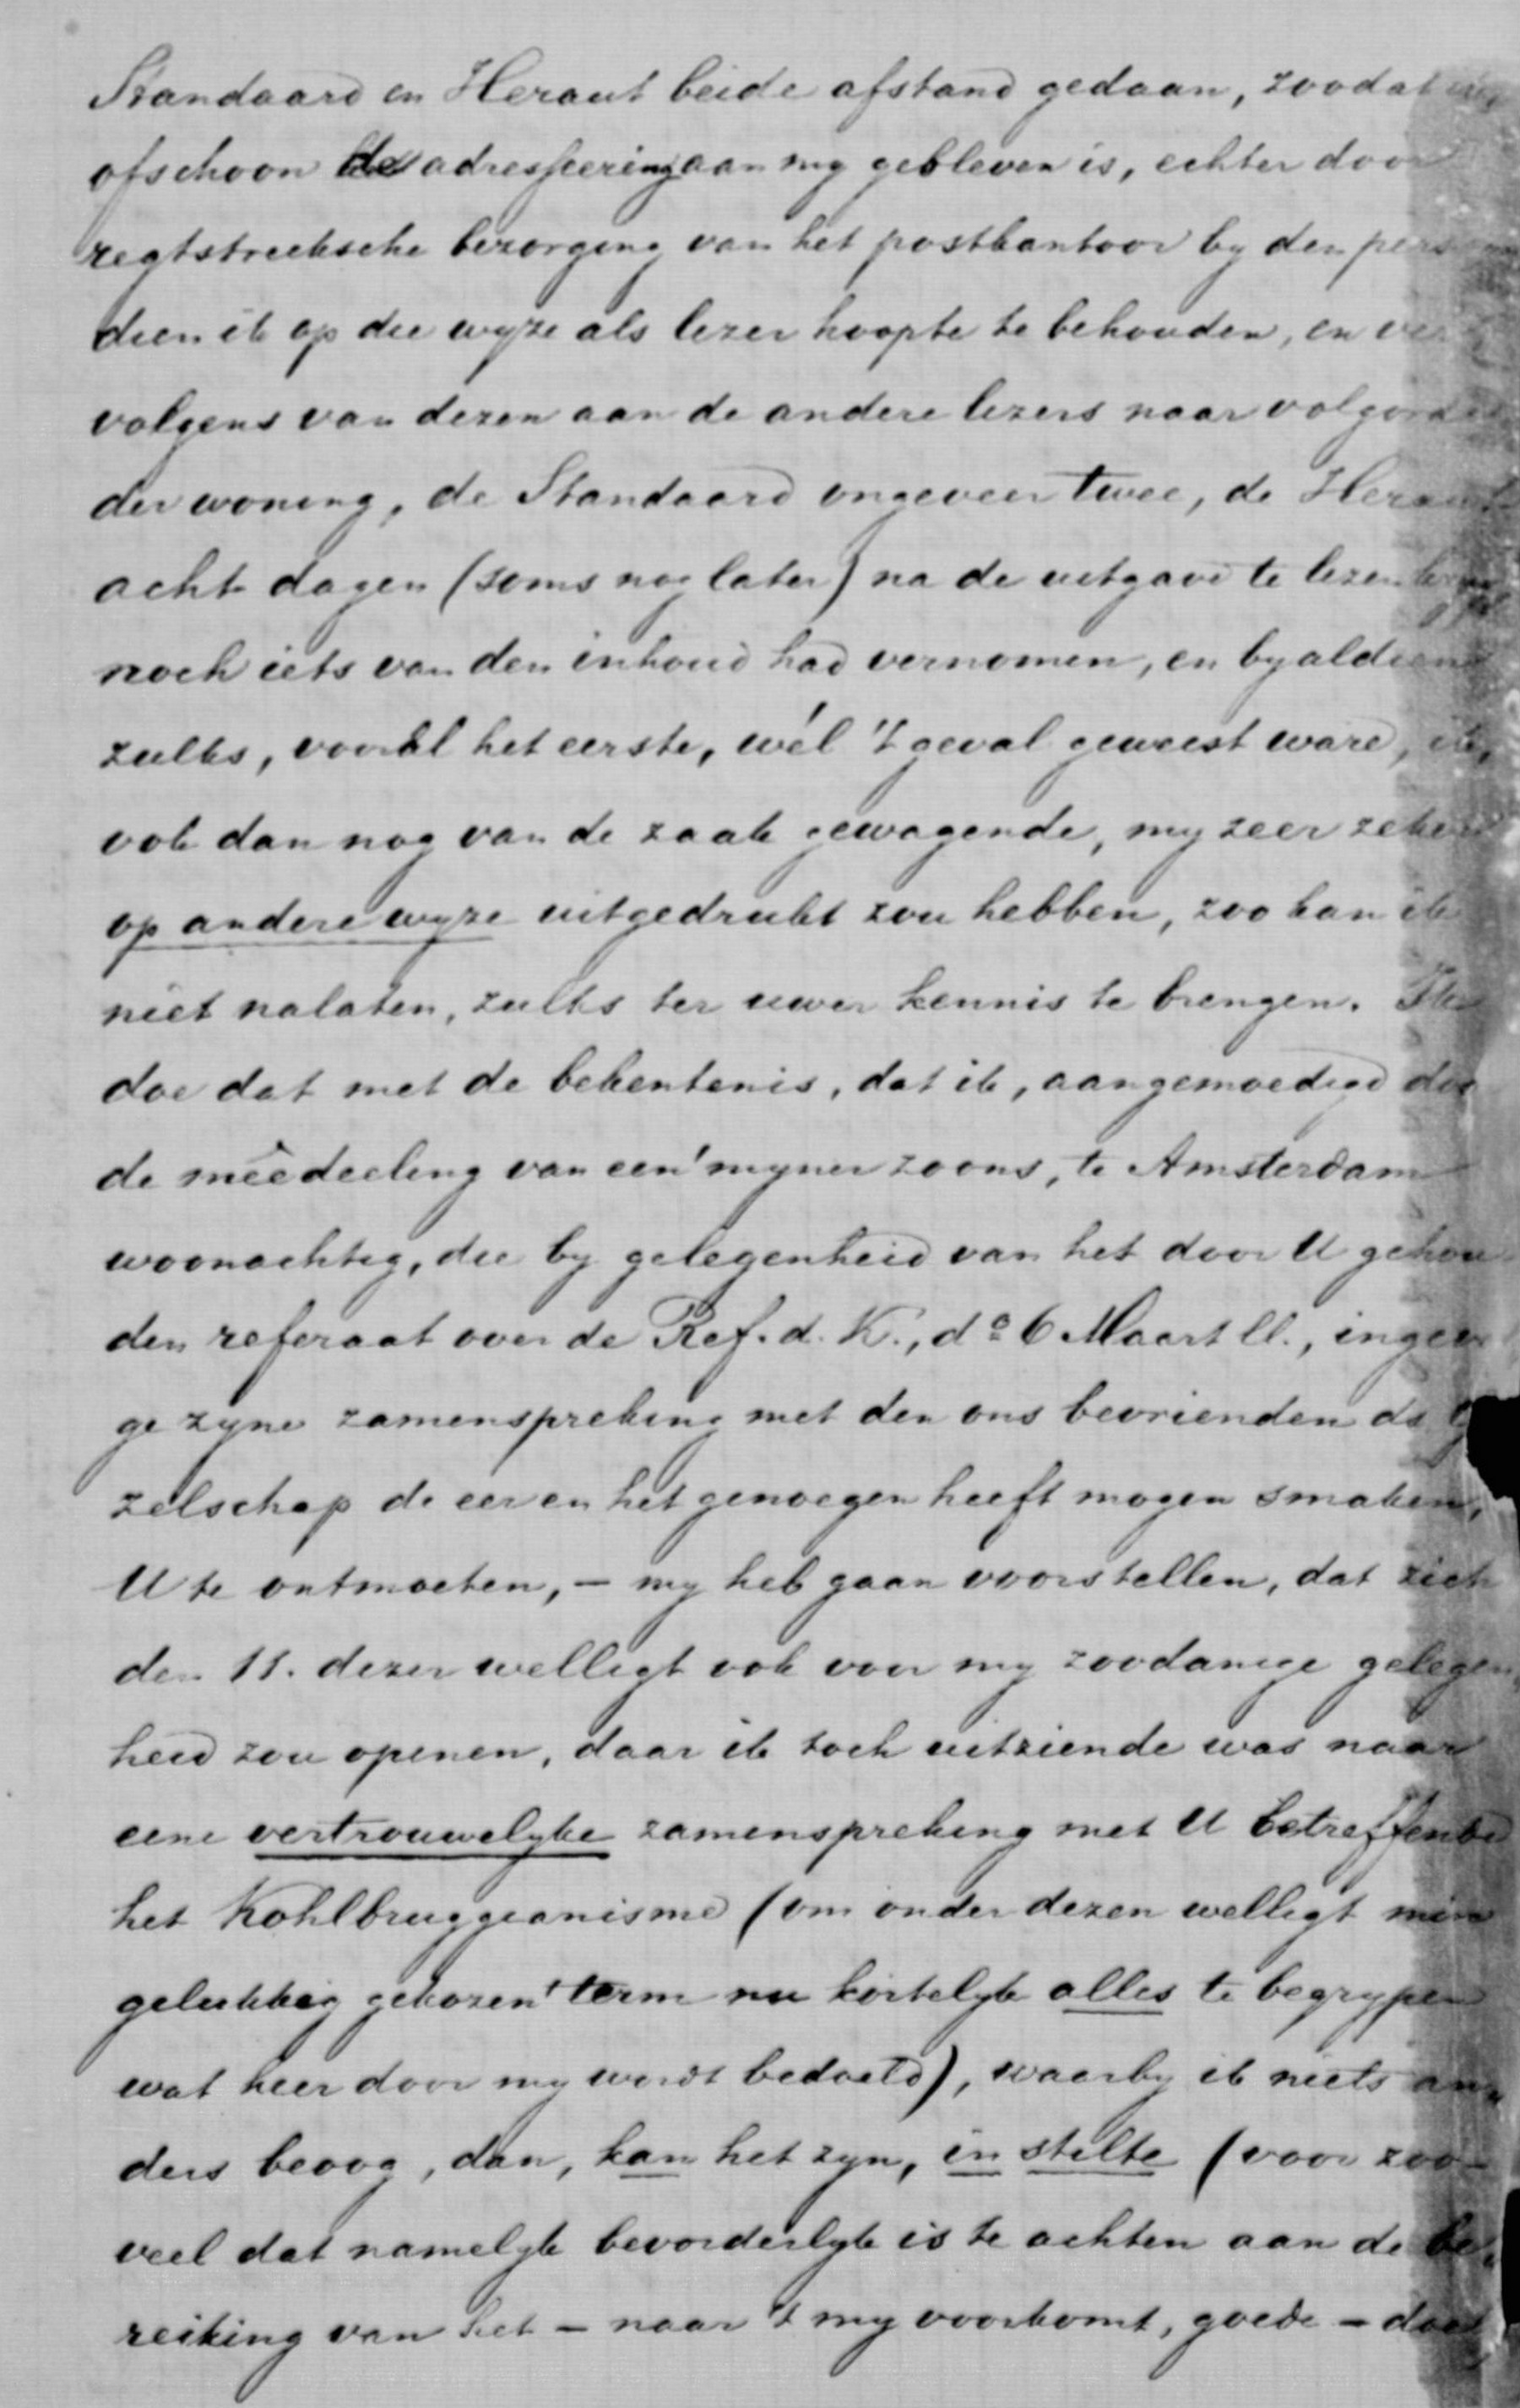 Standaard en Heraut beide afstand gedaan, zoodat
ofschoon de adresseering aan my gebleven is, echter door
regtstreeksche bezorging van het postkantoor by den
dien ik op die wyze als lezer hoopte te behouden, en ver
volgens van dezen aan de andere lezers naar volgorde
der woning, de Standaard ongeveer twee, de Heraut
acht dagen (soms nog later) na de uitgave te lezen
noch iets van den inhoud had vernomen, en byaldien
zulks, vooral het eerste, wél 't geval geweest ware, ik,
ook dan nog van de zaak gewagende, my zeer zeker
op andere wyze uitgedrukt zou hebben, zoo kan ik
niet nalaten, zulks ter uwer kennis te brengen. Ik
doe dat met de bekentenis, dat ik, aangemoedigd door
de meêdeeling van een' myner zoons, te Amsterdam
woonachtig, die by gelegenheid van het door U gehou
den referaat over de Ref. d. K., do 6 Maart ll., ingevol
ge zyne zamenspreking met den ons bevrienden ds
zelschap de eer en het genoegen heeft mogen smaken,
U te ontmoeten, – my heb gaan voorstellen, dat zich
den 11. dezer welligt ook voor my zoodanige gelegen
heid zou openen, daar ik toch uitziende was naar
eene vertrouwelyke zamenspreking met U betreffende
het Kohlbruggianisme (om onder dezen welligt min
gelukkig gekozen' term nu kortelyk alles te begrypen
wat hier door my wordt bedoeld), waarby ik niets an
ders beoog, dan, kan het zyn, in stilte (voor zoo-
veel dat namelyk bevorderlyk is te achten aan de be
reiking van het – naar 't my voorkomt, goede – doel